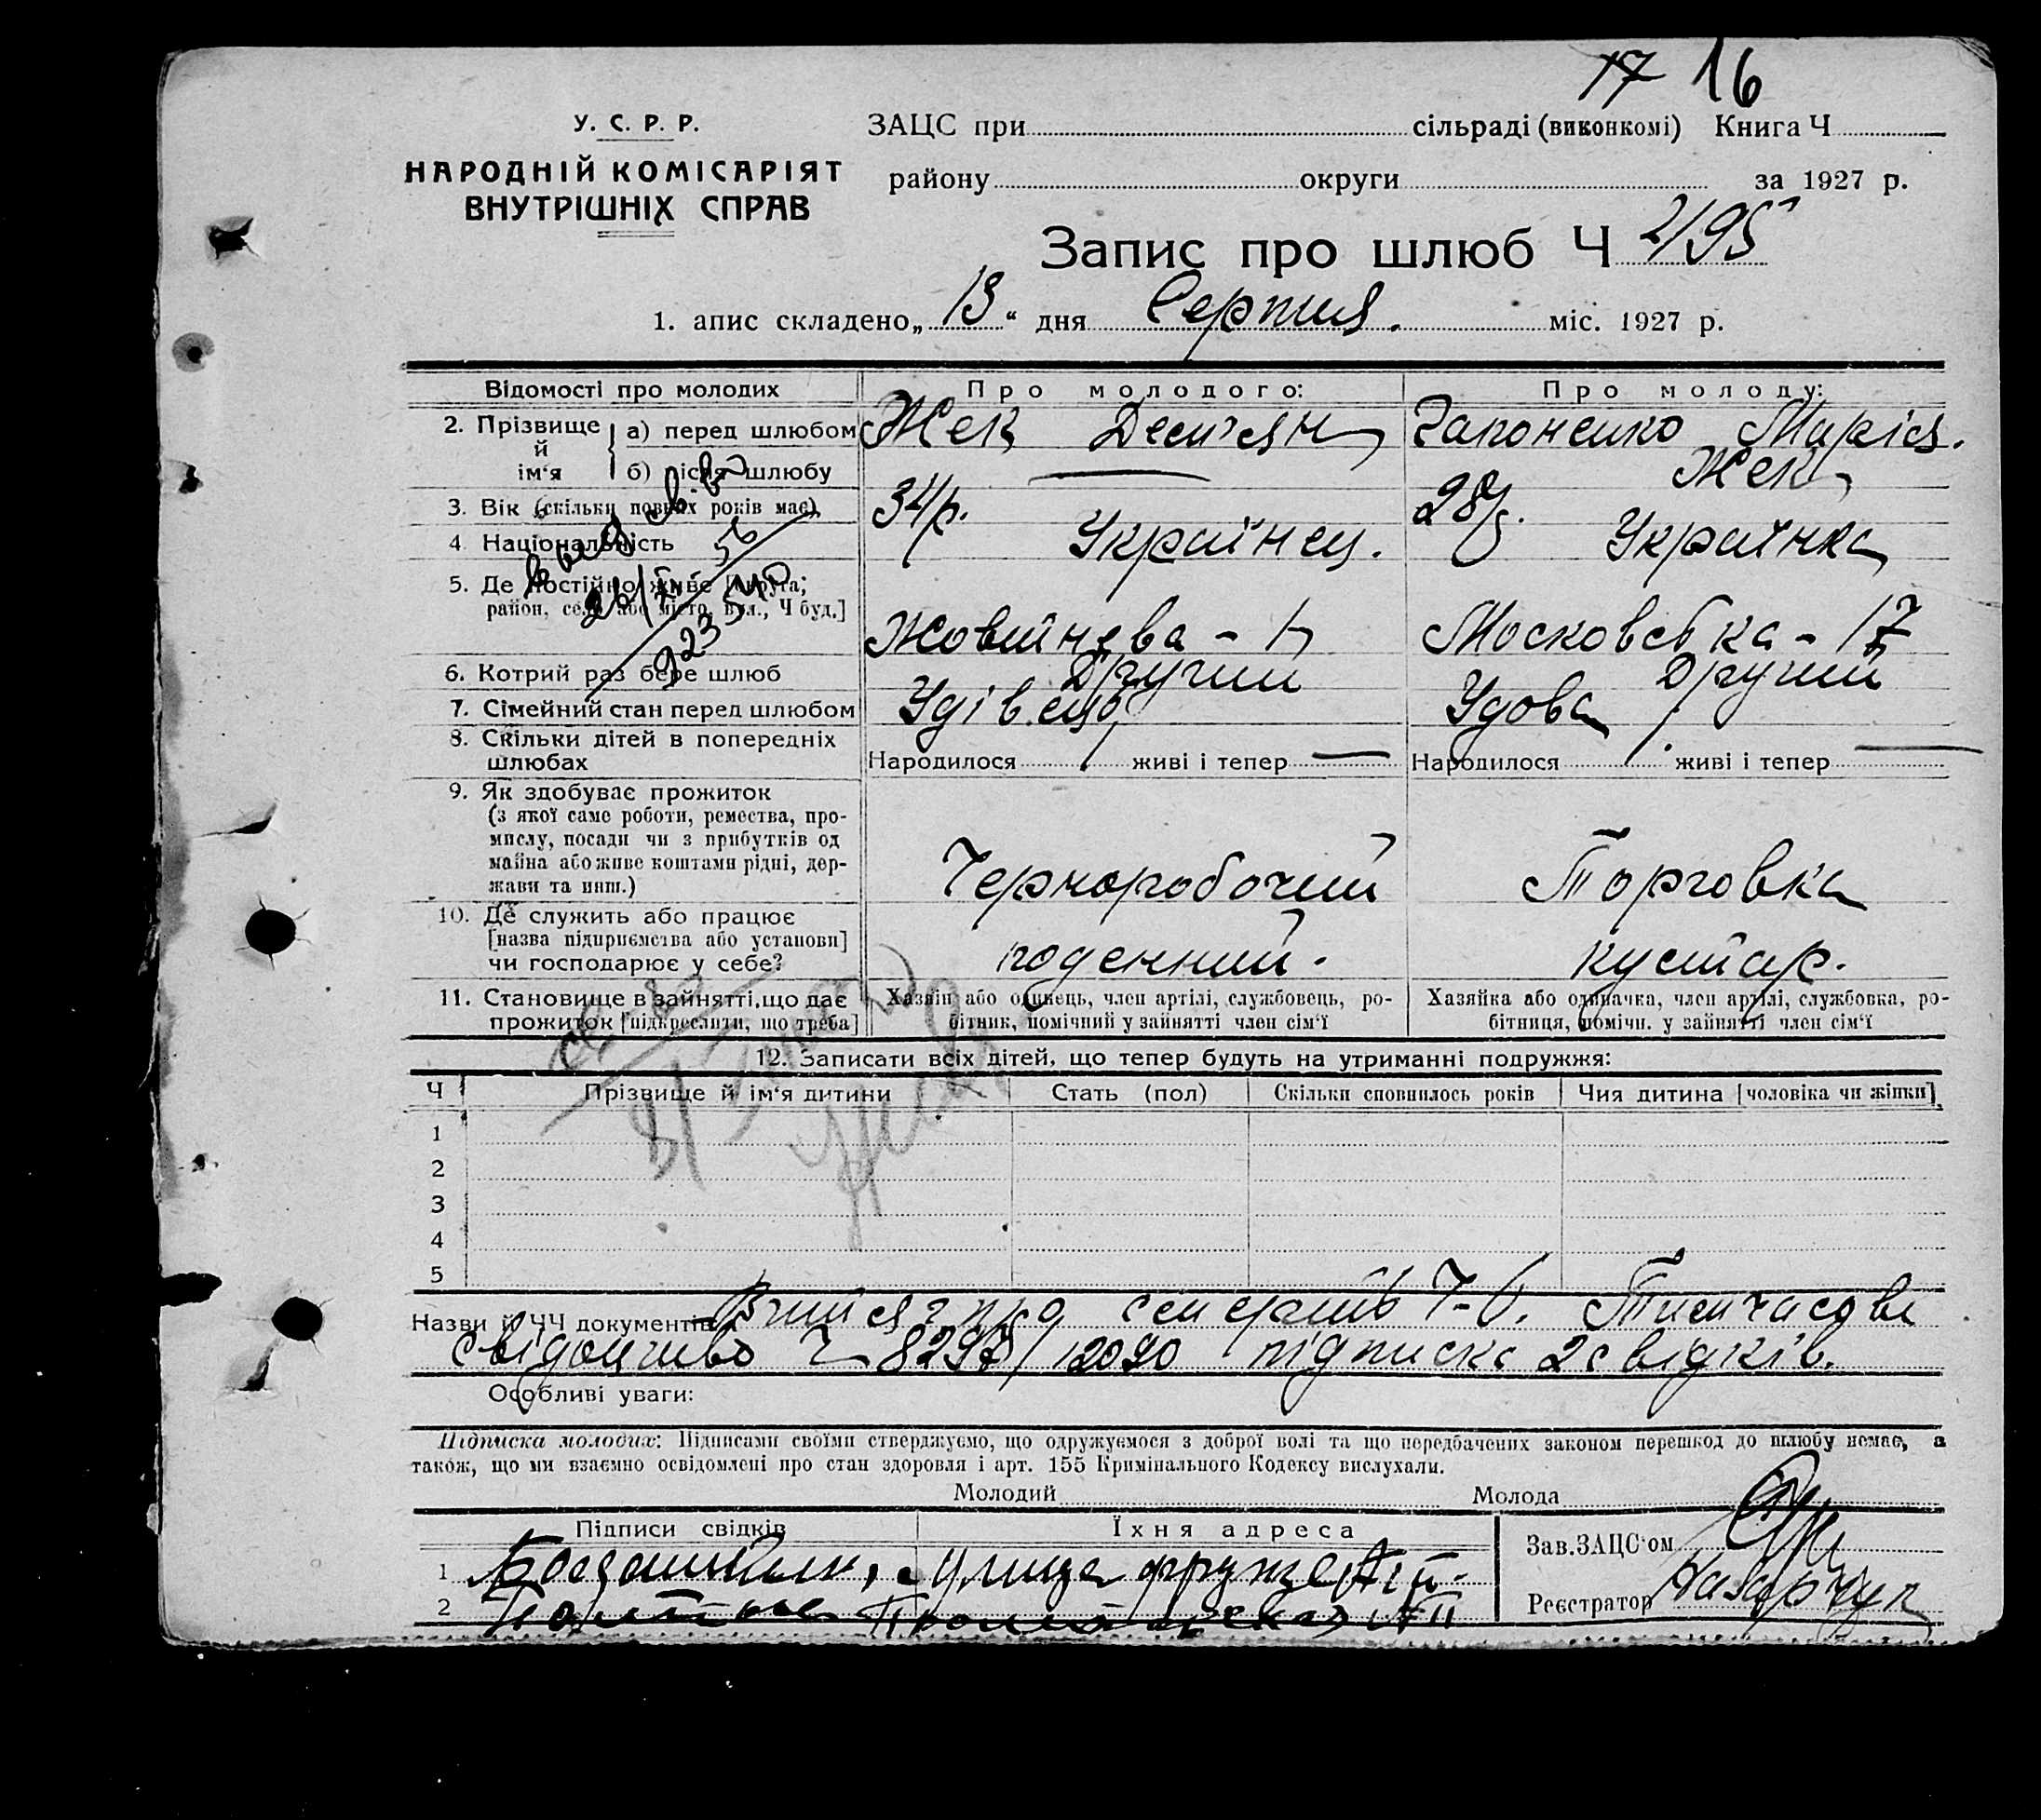 17 16
У. С. Р. Р.
НАРОДНІЙ КОМІСАРІЯТ
ВНУТРІШНІХ СПРАВ
ЗАЦС при сільраді (виконкомі) Книга Ч
району округи за 1927 р.
Запис про шлюб Ч 2/95
1. апис складено „13“ дня Серпня. міс. 1927 р.
Відомості про молодих Про молодого: Про молоду:
2. Прізвище й ім‘я а) перед шлюбом Жек Дем'ян Гапоненко Марія.
б) після шлюбу — Жек
3. Вік (скільки повних років має) 34/р. 28/р.
4. Національність Українец. Українка
5. Де постійно живе [округа, район, село або місто, вул., Ч буд.] Жовтнева - 17 Московська - 17
6. Котрий раз бере шлюб Другий Другий
7. Сімейний стан перед шлюбом Удівець Удова
8. Скільки дітей в попередніх шлюбах Народилося живі і тепер — Народилося живі і тепер —
9. Як здобуває прожиток
(з якої саме роботи, ремества, про-
мислу, посади чи з прибутків од
майна або живе коштами рідні, дер-
жави та инш.) Чорноробочий Торговка
10. Де служить або працює
[назва підприємства або установи]
чи господарює у себе? годенний. кустар.
11. Становище в зайнятті, що дає
прожиток [підкреслити, що треба]
Хазяїн або одинець, член артілі, службовець, ро-
бітник, помічний у зайнятті член сім‘ї
Хазяйка або одиначка, член артілі, службовка, ро-
бітниця, помічн. у зайнятті член сім‘ї
12. Записати всіх дітей, що тепер будуть на утриманні подружжя:
Ч Прізвище й ім‘я дитини Стать (пол) Скільки сповнилось років Чия дитина [чоловіка чи жінки]
1
2
3
4
5
Назви й ЧЧ документів Тимчасове
свідоцтво Ч 8297/12020 підписка 2 свідків.
Особливі уваги:
Підписка молодих: Підписами своїми стверджуємо, що одружуємося з доброї волі та що передбачених законом перешкод до шлюбу немає, а
також, що ми взаємно освідомлені про стан здоровля і арт. 155 Кримінального Кодексу вислухали.
Молодий Молода
Підписи свідків Їхня адреса
1 улица
2
Зав. ЗАЦС‘ом
Реєстратор Назарчук